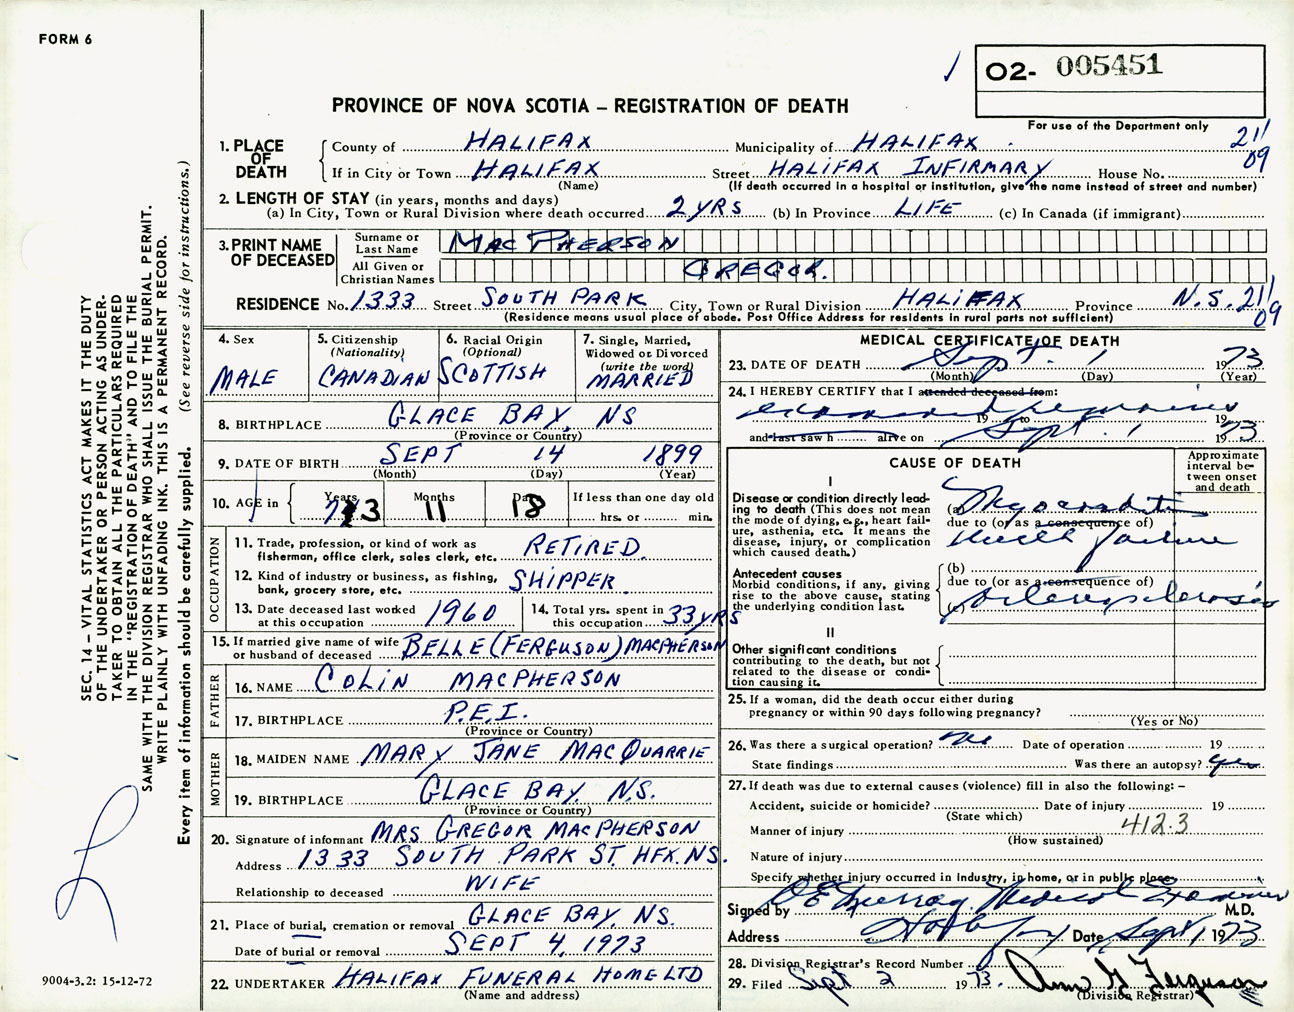 FORM 6
O2- 005451
PROVINCE OF NOVA SCOTIA – REGISTRATION OF DEATH
For use of the Department only
211
09
1. PLACE OF DEATH
County of HALIFAX Municipality of HALIFAX
If in City or Town HALIFAX Street HALIFAX INFIRMARY House No.
(Name) (If death occurred in a hospital or institution, give the name instead of street and number)
2. LENGTH OF STAY (in years, months and days)
(a) In City, Town or Rural Division where death occurred 2 YRS (b) In Province LIFE (c) In Canada (if immigrant)
3. PRINT NAME OF DECEASED
Surname or Last Name MAC PHERSON
All Given or Christian Names GREGOR.
RESIDENCE No. 1333 Street SOUTH PARK City, Town or Rural Division HALIFAX Province N.S. 211
09
(Residence means usual place of abode. Post Office Address for residents in rural parts not sufficient)
4. Sex
MALE
5. Citizenship (Nationality)
CANADIAN
6. Racial Origin (Optional)
SCOTTISH
7. Single, Married, Widowed or Divorced (write the word)
MARRIED
8. BIRTHPLACE GLACE BAY, NS
(Province or Country)
9. DATE OF BIRTH SEPT 14 1899
(Month) (Day) (Year)
10. AGE in Years 73 Months 11 Days 18 If less than one day old
hrs. or min.
OCCUPATION
11. Trade, profession, or kind of work as fisherman, office clerk, sales clerk, etc. RETIRED
12. Kind of industry or business, as fishing, bank, grocery store, etc. SHIPPER
13. Date deceased last worked at this occupation 1960
14. Total yrs. spent in this occupation 33 YRS
15. If married give name of wife or husband of deceased BELLE (FERGUSON) MACPHERSON
FATHER
16. NAME COLIN MACPHERSON
17. BIRTHPLACE P.E.I.
(Province or Country)
MOTHER
18. MAIDEN NAME MARY JANE MACQUARRIE
19. BIRTHPLACE GLACE BAY, N.S.
(Province or Country)
20. Signature of informant MRS. GREGOR MACPHERSON
Address 1333 SOUTH PARK ST. HFX. NS.
Relationship to deceased WIFE
21. Place of burial, cremation or removal GLACE BAY, NS.
Date of burial or removal SEPT 4, 1973
22. UNDERTAKER HALIFAX FUNERAL HOME LTD
(Name and address)
MEDICAL CERTIFICATE OF DEATH
23. DATE OF DEATH Sept. 1 1973
(Month) (Day) (Year)
24. I HEREBY CERTIFY that I attended deceased from:
examined remains 19 to 19
and last saw h alive on Sept. 1 1973
CAUSE OF DEATH
Approximate interval between onset and death
I
Disease or condition directly leading to death (This does not mean the mode of dying, e.g., heart failure, asthenia, etc. It means the disease, injury, or complication which caused death.)
(a) Myocarditis
due to (or as a consequence of)
Antecedent causes
Morbid conditions, if any, giving rise to the above cause, stating the underlying condition last.
(b)
due to (or as a consequence of)
(c) Arteriosclerosis
II
Other significant conditions contributing to the death, but not related to the disease or condition causing it.
25. If a woman, did the death occur either during pregnancy or within 90 days following pregnancy?
(Yes or No)
26. Was there a surgical operation? no Date of operation 19
State findings Was there an autopsy? yes
27. If death was due to external causes (violence) fill in also the following: –
Accident, suicide or homicide? Date of injury 19
(State which)
412.3
Manner of injury
(How sustained)
Nature of injury
Specify whether injury occurred in Industry, in home, or in public place
Signed by Murray Medical Examiner M.D.
Address Halifax Date Sept 1, 1973
28. Division Registrar's Record Number
29. Filed Sept 2 1973. Ann G Ferguson
(Division Registrar)
SEC. 14 – VITAL STATISTICS ACT MAKES IT THE DUTY
OF THE UNDERTAKER OR PERSON ACTING AS UNDER-
TAKER TO OBTAIN ALL THE PARTICULARS REQUIRED
IN THE "REGISTRATION OF DEATH" AND TO FILE THE
SAME WITH THE DIVISION REGISTRAR WHO SHALL ISSUE THE BURIAL PERMIT.
WRITE PLAINLY WITH UNFADING INK. THIS IS A PERMANENT RECORD.
Every item of information should be carefully supplied. (See reverse side for instructions.)
9004-3.2: 15-12-72